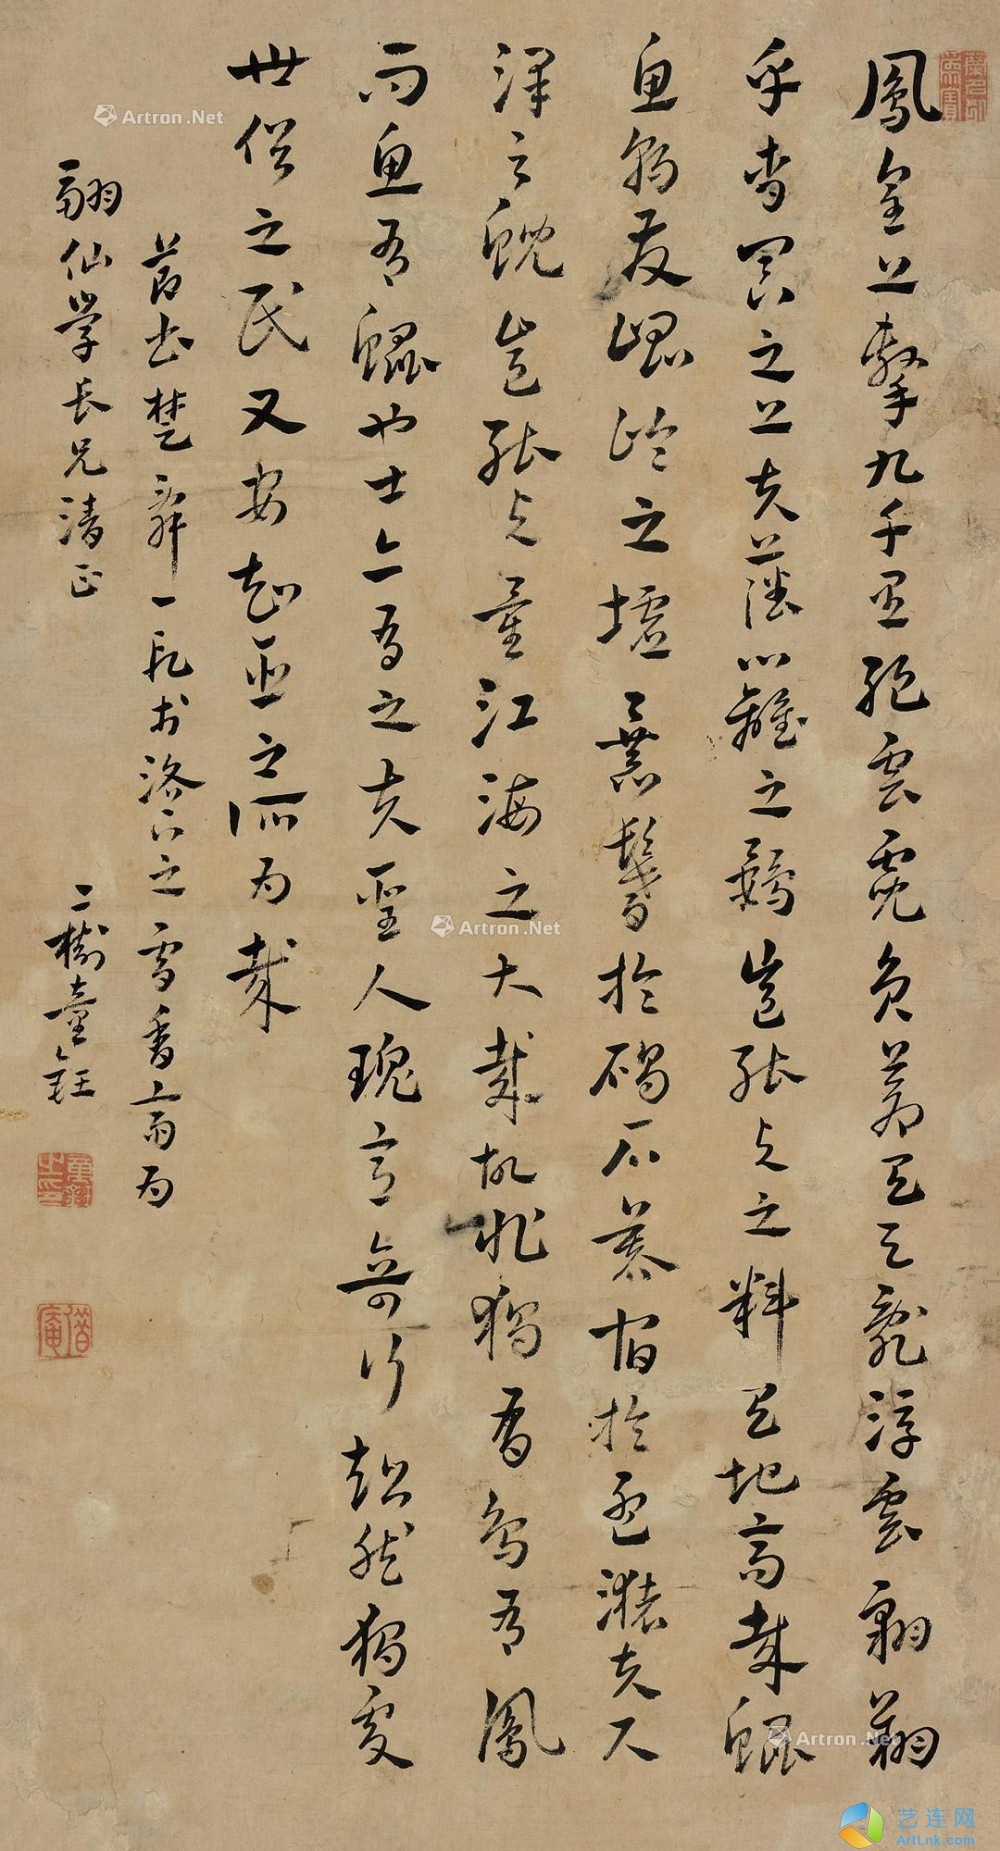 鳳皇上擊九千里絕雲霓負蒼天足亂浮雲翱翔
乎杳冥之上夫藩籬之鷃豈能與之料天地高哉鯤
魚朝發崑崙之墟暴鬐於碣石暮宿於孟諸夫尺
澤之鯢豈能與量江海之大哉故非獨有鳥有鳳
而魚有鯤也士亦有之夫聖人瑰意奇行超然獨處
世俗之民又安知臣之所為哉
節書楚辭一段於洛下之雪香齋為
翮仙學長兄清正
二樹童鈺
童鈺之印
借庵
Artron.Net
Artron.Net
Artron.Net
艺连网
ArtLnk.com